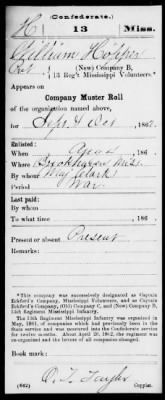 (Confederate.)
H 13 Miss.
William Hopper
(New) Company B,
13 Reg't Mississippi Volunteers.*
Appears on
Company Muster Roll
of the organization named above,
for Sept & Oct, 186
Enlisted:
When 186
Where Brookhaven Miss.
By whom Maj Clark
Period War
Last paid:
By whom
To what time , 186 .
Present or absent Present
Remarks:
*This company was successively designated as Captain
Eckford's Company, Mississippi Volunteers, and as Captain
Eckford's Company, (Old) Company C, and (New) Company B,
13th Regiment Mississippi Infantry.
The 13th Regiment Mississippi Infantry was organized in
May, 1861, of companies which had previously been in the
State service and was mustered into the Confederate service
for twelve months. About April 26, 1862, the regiment was
re-organized, the letters of companies changed.
Book mark:
(642) Copyist.